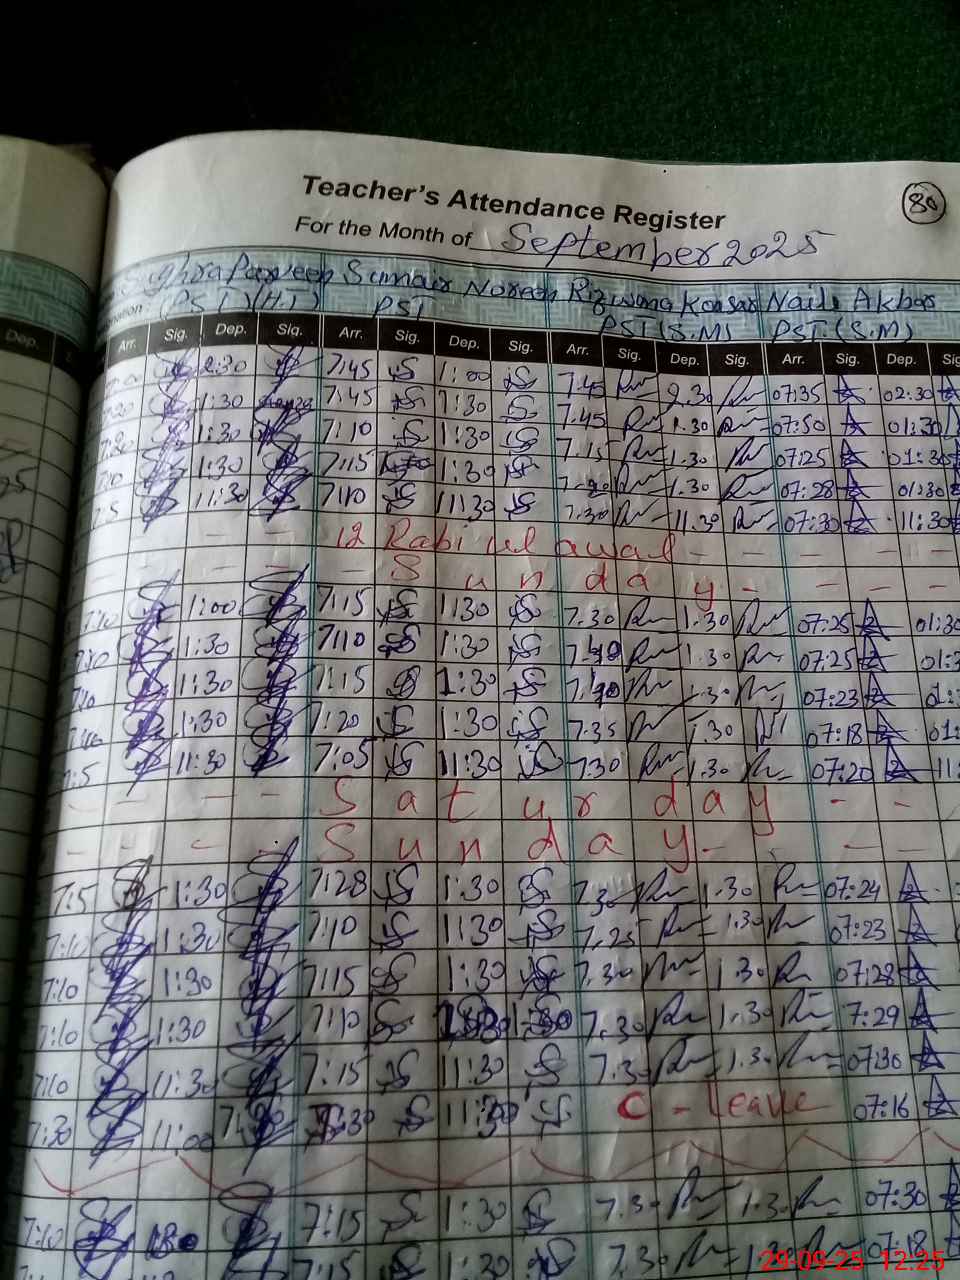 Teacher's Attendance Register
80
For the Month of September 2025
Sughra Parveen Sumair Noreen Rizwana Kousar Naila Akbar
PST (H.T) PST PST (S.M) PST (S.M)
Dep. Arr. Sig. Dep. Sig. Arr. Sig. Dep. Sig. Arr. Sig. Dep. Sig. Arr. Sig. Dep. Sig
2:30 7:45 1:00 7.45 2.30 07:35 02:30
1:30 7:45 1:30 7.45 1.30 07:50 01:30
1:30 7:10 1:30 7.15 1.30 07:25 01:30
7:10 1:30 7:15 1:30 1.30 07:28 01:30
7:5 11:30 7:10 11:30 7.30 11.30 07:30 11:30
- - - 12 Rabi ul awal - - - -
- - - - Sunday - - - -
7:10 1:00 7:15 1:30 7.30 1.30 07:25 01:30
7:10 1:30 7:10 1:30 1.30 07:25 01:3
1:30 7:15 1:30 1.30 07:23 01:
1:30 7:20 1:30 7.35 1.30 07:18 01:
7:5 11:30 7:05 11:30 7.30 1.30 07:20 11:
- - - - Saturday - - -
- - - - Sunday - - -
7:5 1:30 7:28 1:30 7.30 1.30 07:24
7:10 1:30 7:10 1:30 7.25 1.30 07:23
7:10 1:30 7:15 1:30 7.30 1.30 07:28
7:10 1:30 7:10 7.30 1.30 7:29
7:10 11:30 7:15 11:30 7.30 1.30 0730
7:30 11:00 11:30 C - Leave 07:16
7:10 7:15 1:30 7.30 1.30 07:30
7:15 1:30 7.30 1.30 07:18
29-09-25 12:25